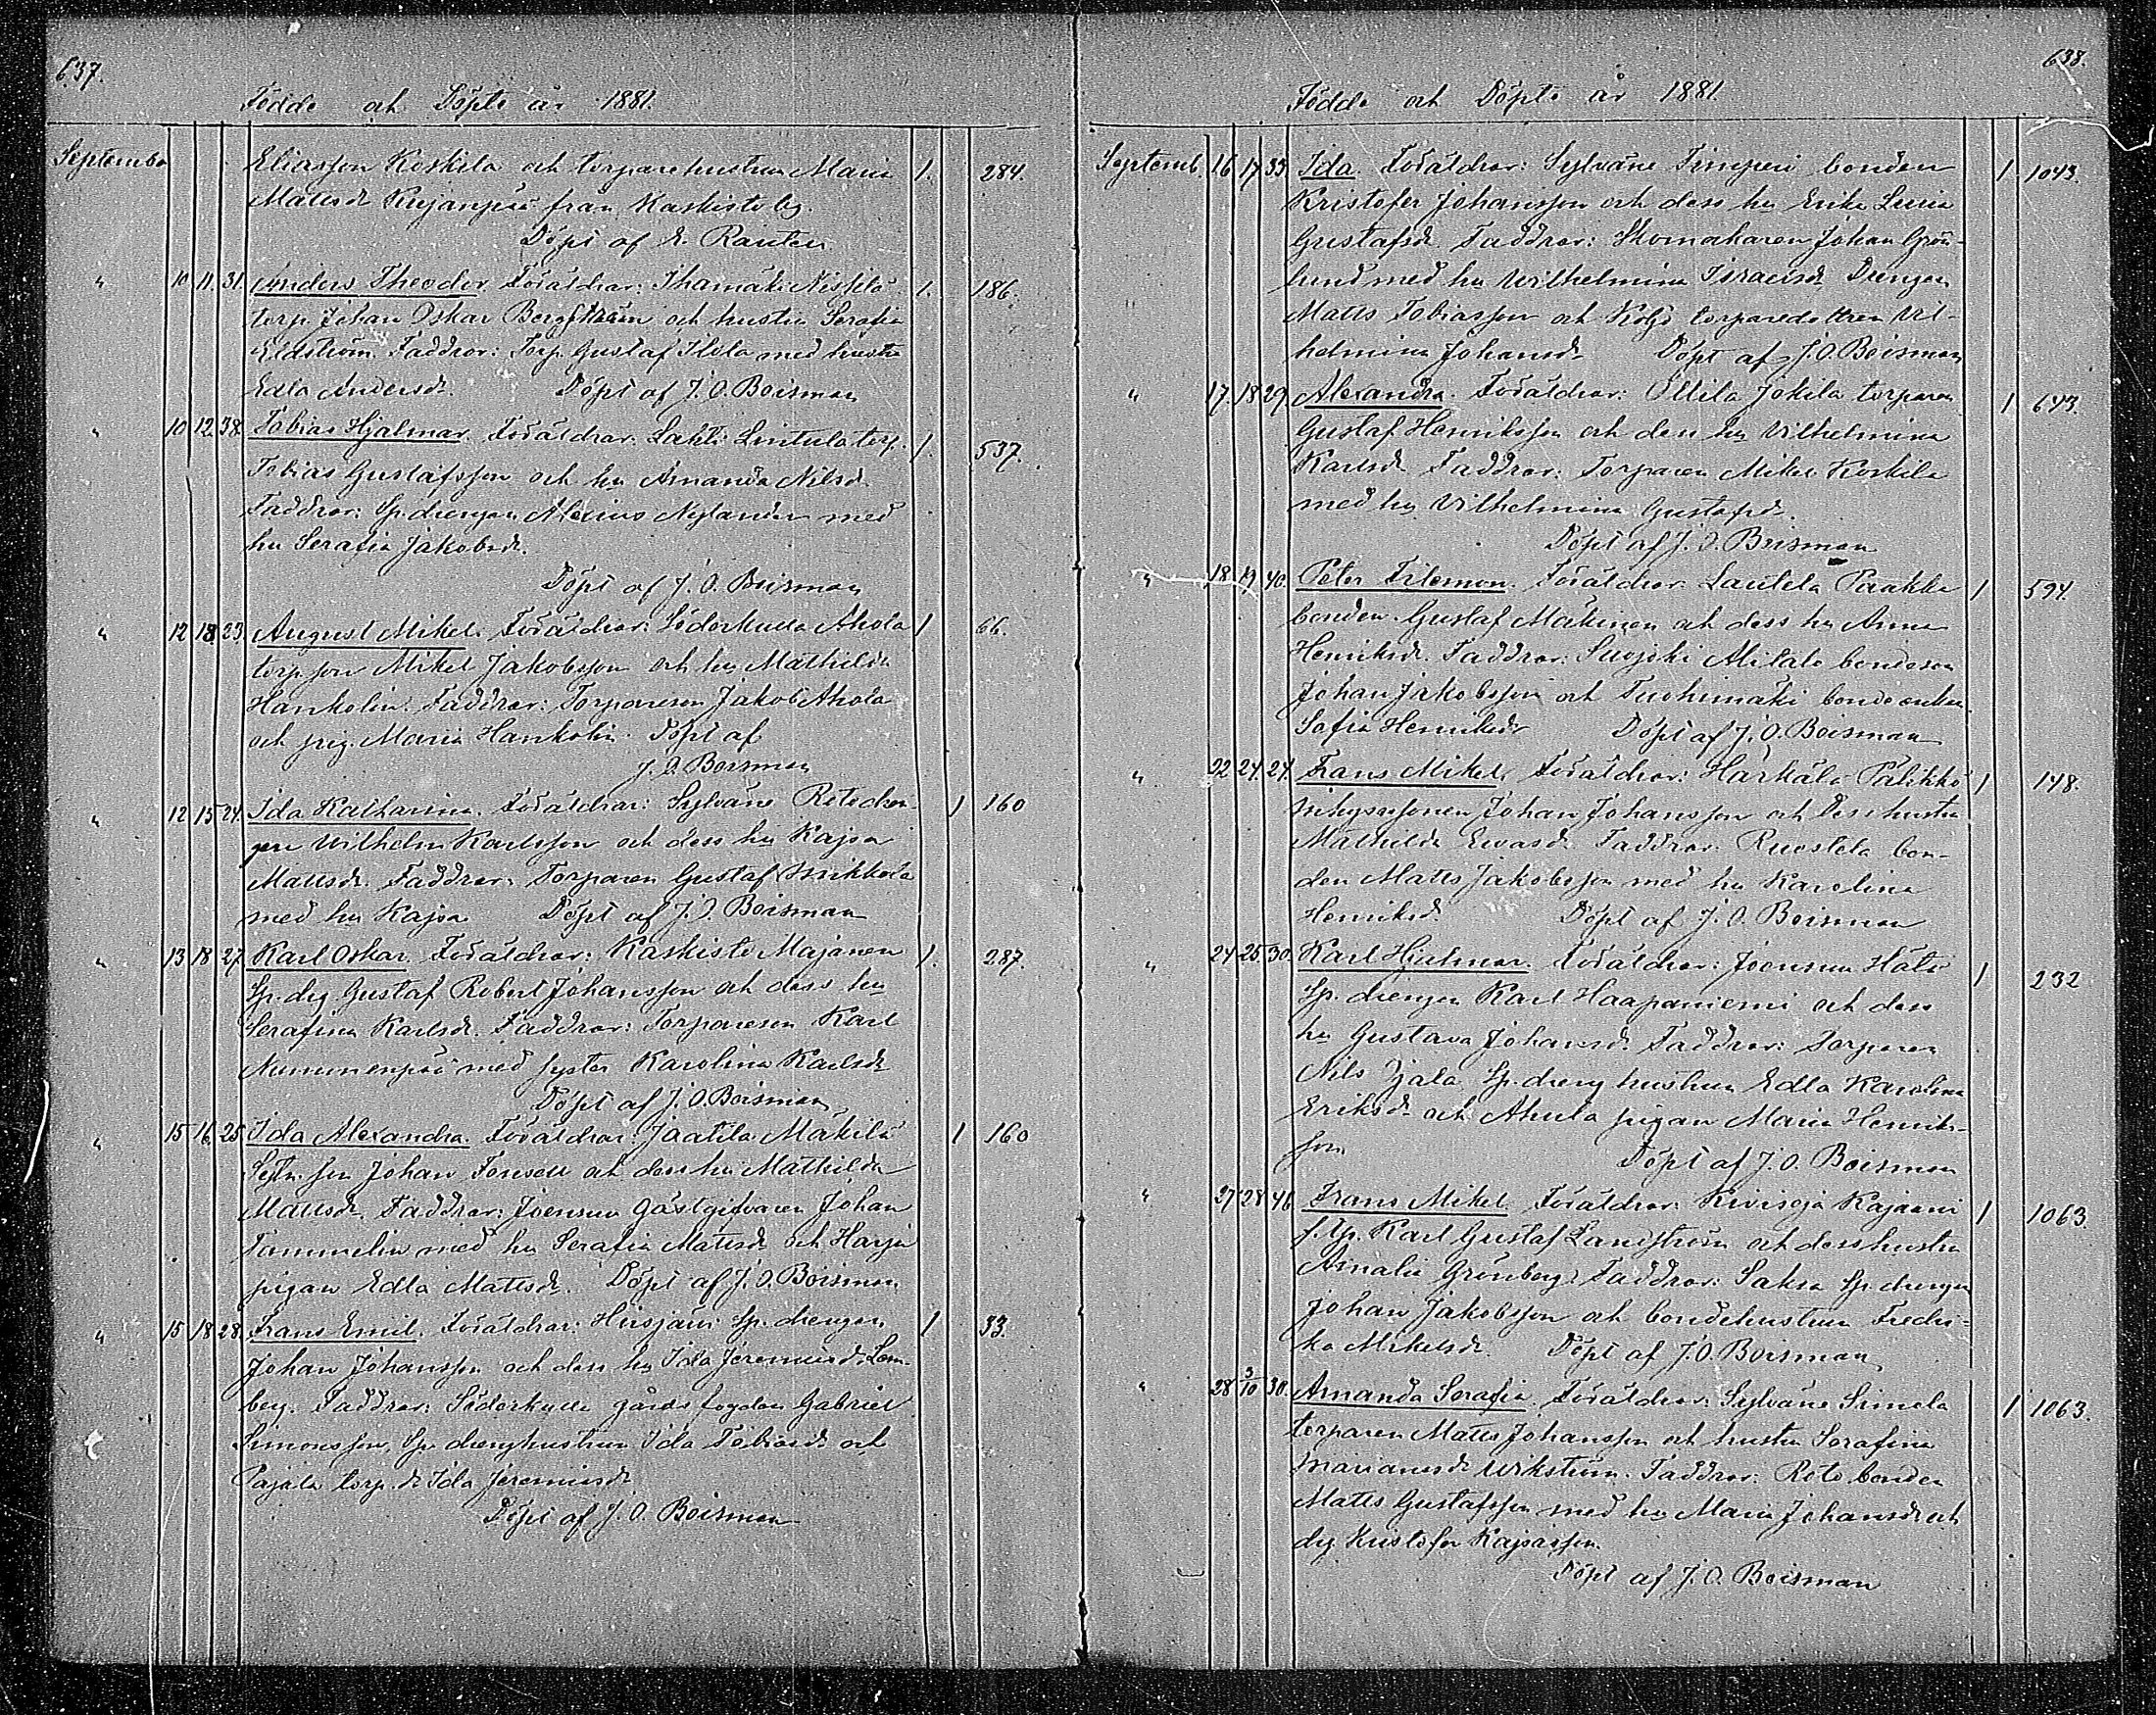 637.
Födde och Döpte år 1881.
September Eliasson Koskila och torparehustrun Maria 1. 284.
Mattsdr Kujanpää från Kaskisto by.
Döpt af E. Rautell
" 10 11. 31. Anders Theodor. Föräldrar: Ihamäki Nissilä 1. 186.
torp. Johan Oskar Bergström och hustru Serafia
Eldström. Faddrar: Torp. Gustaf Ilola med hustru
Edla Andersdr. Döpt af J. O. Boisman
" 10 12. 38. Tobias Hjalmar. Föräldrar: Lahti Lintula torp. 1. 537.
Tobias Gustafsson och hu Amanda Nilsd.
Faddrar: Sp. drengen Alexius Nylander med
hu Serafia Jakobsdr.
Döpt af J. O. Boisman
" 12 18. 23. August Mikel. Föräldrar: Söderkulla Ahola 1 66.
torp. son Mikel Jakobsson och hu Mathilda
Hankolin. Faddrar: Torpareson Jakob Ahola
och pig. Maria Hankolin. Döpt af
J. O. Boisman
" 12 15 24. Ida Katharina. Föräldrar: Sylväne Reto dren- 1 160
gen Wilhelm Karlsson och dess hu Kajsa
Mattsdr. Faddrar: Torparen Gustaf Mikkola
med hu Kajsa Döpt af J. O. Boisman
" 13 18 27. Karl Oskar. Föräldrar: Kaskisto Majanen 1. 287.
Sp. drg. Gustaf Robert Johansson och dess hu
Serafina Karlsdr. Faddrar: Torpareson Karl
Nummenpää med syster Karolina Karlsdr
Döpt af J. O. Boisman
" 15 16. 25. Ida Alexandra. Föräldrar: Jaatila Mäkilä 1 160
Sytn. son Johan Forsell och dess hu Mathilda
Mattsdr. Faddrar: Joensuu Gästgifvaren Johan
Tammelin med hu Serafia Mattsdr och Harju
pigan Edla Mattsdr. Döpt af J. O. Boisman
" 15 18 28. Frans Emil. Föräldrar: Hirsjärvi Sp. drengen 1 33.
Johan Johansson och dess hu Ida Jeremiasdr Lem-
berg. Faddrar: Söderkulla gårdsfogden Gabriel
Simonsson, Sp. drenghustrun Ida Tobiasdr och
Pajala torp. dr Ida Jeremiasdr
Döpt af J. O. Boisman
638.
Födde och Döpte år 1881.
Septemb. 16 17 33 Ida. Föräldrar: Sylväne Timperi bonden 1 1043.
Kristofer Johansson och dess hu Erika Lovisa
Gustafsdr. Faddrar: Skomakaren Johan Grön-
lund med hu Wilhelmina Israelsdr Drengen
Matts Tobiasson och Koljo torparedottren Vil-
helmina Johansdr Döpt af J. O. Boisman
" 17. 18 29. Alexandra. Föräldrar: Ollila Jokela torparen 1 643.
Gustaf Henriksson och dess hu Vilhelmina
Karlsdr Faddrar: Torparen Mikel Koskila
med hu Vilhelmina Gustafsdr.
Döpt af J. O. Boisman
" 18 19 40. Peter Filemon. Föräldrar: Lautela Paakka 1 594.
bonden Gustaf Mäkinen och dess hu Anna
Henriksdr. Faddrar: Suojoki Alitalo bondeson
Johan Jakobsson och Tuohimäki bondeenkan
Sofia Henriksdr Döpt af J. O. Boisman
" 22 24 24. Frans Mikel. Föräldrar: Härkälä Palikko 1 148.
inhysesonen Johan Johansson och dess hustru
Mathilda Evasdr. Faddrar: Ruostela bon-
den Matts Jakobsson med hu Karolina
Henriksd. Döpt af J. O. Boisman
" 24 25 30. Karl Hjalmar. Föräldrar: Joensuu Hato 1 232
Sp. drengen Karl Haapaniemi och dess
hu Gustava Johansd. Faddrar: Torparen
Nils Ojala Sp. dreng hustrun Edla Karolina
Eriksdr och Ahula pigan Maria Henriks-
son Döpt af J. O. Boisman
" 27 28 46 Frans Mikel. Föräldrar: Kivioja Kajaani 1 1063.
f. tp. Karl Gustaf Landström och dess hustru
Amalia Grönberg. Faddrar: Saksa Sp. drengen
Johan Jakobsson och bondehustrun Fredri-
ka Mikelsdr. Döpt af J. O. Boisman
" 28 3/10 30. Amanda Serafia. Föräldrar: Sylväne Simola 1 1063.
torparen Matts Johansson och hustru Serafina
Marianasdr Wikström. Faddrar: Reto bonden
Matts Gustafsson med hu Maria Johansdr och
drg Kristofer Kajsasson.
Döpt af J. O. Boisman